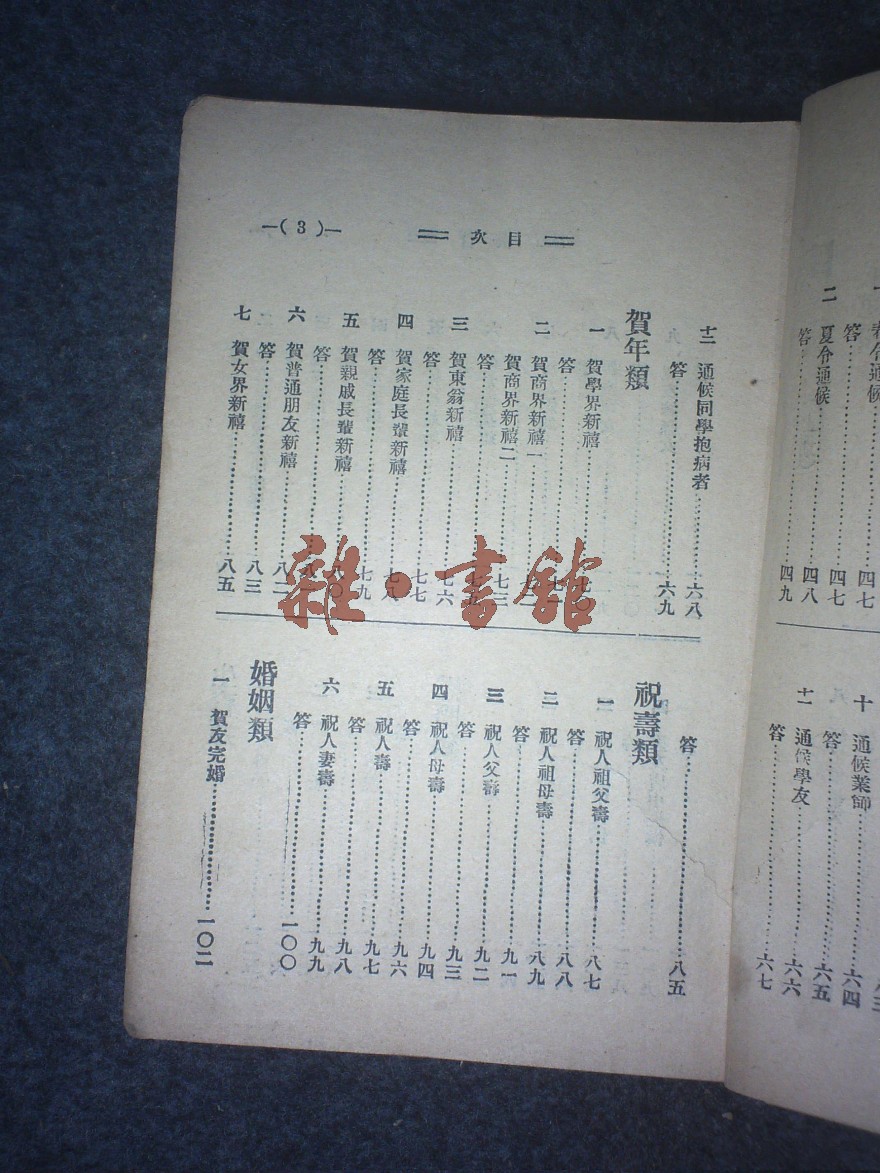 春令通候……四七
答……四七
二 夏令通候……四八
答……四九
十 通候業師……六四
答……六五
十一 通候學友……六六
答……六七
—( 3 )—
目次
十二 通候同學抱病者……六八
答……六九
賀年類
一 賀學界新禧……〇
答……
二 賀商界新禧一……
賀商界新禧二……七三
答……
三 賀東翁新禧……七六
答……七七
四 賀家庭長輩新禧……七八
答……七九
五 賀親戚長輩新禧……八〇
答……八
六 賀普通朋友新禧……八二
答……八三
七 賀女界新禧……八五
答……八五
祝壽類
一 祝人祖父壽……八七
答……八八
二 祝人祖母壽……八九
答……九一
三 祝人父壽……九二
答……九三
四 祝人母壽……九四
答……九六
五 祝人壽……九七
答……九八
六 祝人妻壽……九九
答……一〇〇
婚姻類
一 賀友完婚……一〇二
雜·書館